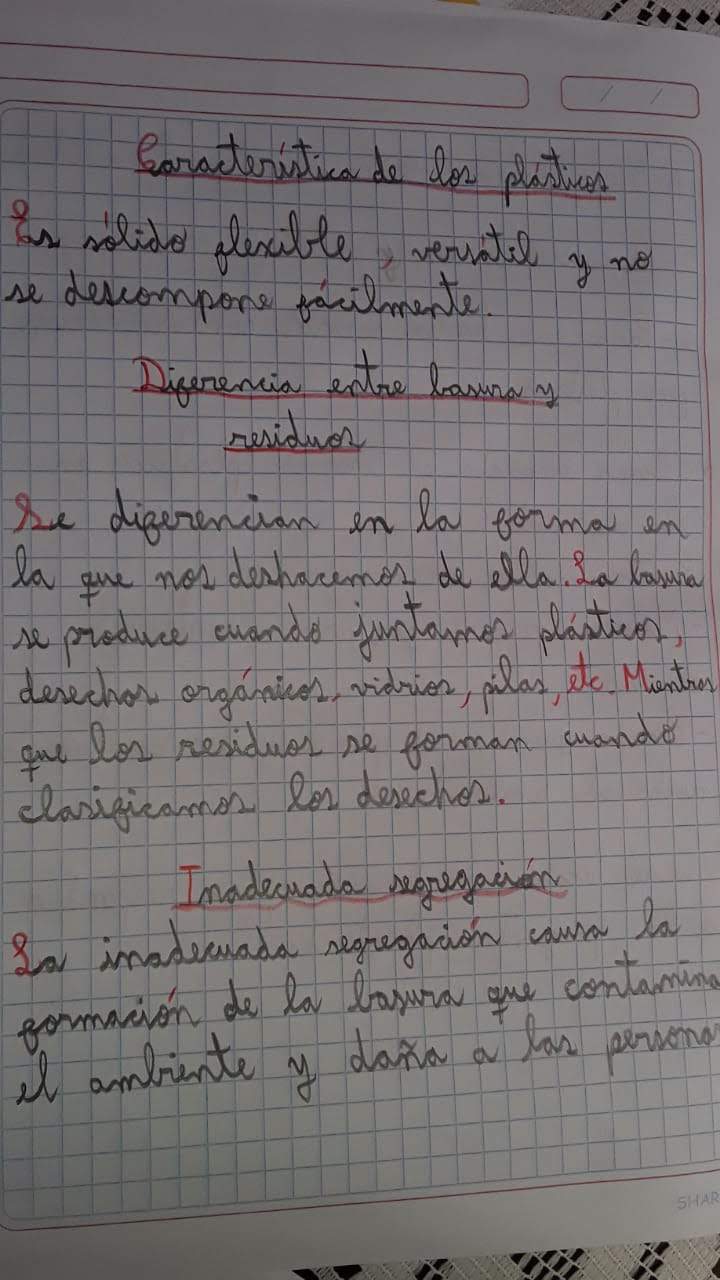 Característica de los plásticos
Es sólido flexible, versátil y no
se descompone fácilmente.
Diferencia entre basura y
residuos
Se diferencian en la forma en
la que nos deshacemos de ella. La basura
se produce cuando juntamos plásticos,
desechos orgánicos, vidrios, pilas, etc. Mientras
que los residuos se forman cuando
clasificamos los desechos.
Inadecuada segregación
La inadecuada segregación causa la
formación de la basura que contamina
el ambiente y daña a las persona
SHAR